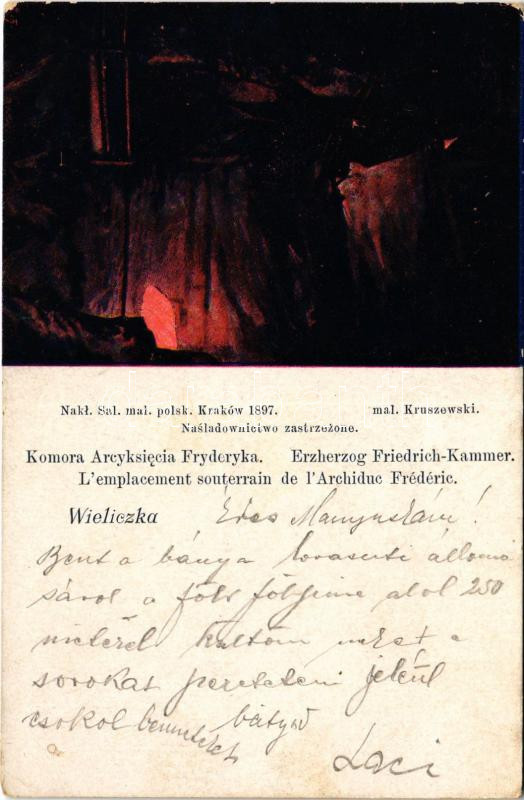 Nakł. Sal. mal. polsk. Kraków 1897. mal. Kruszewski.
Naśladownictwo zastrzeżone.
Komora Arcyksięcia Fryderyka. Erzherzog Friedrich-Kammer.
L'emplacement souterrain de l'Archiduc Frédéric.
Wieliczka Édes !
Bent a bánya álloma
sáról a föld alol 250
a
sorokat jeléül
csokol benneteket bátyád
Laci